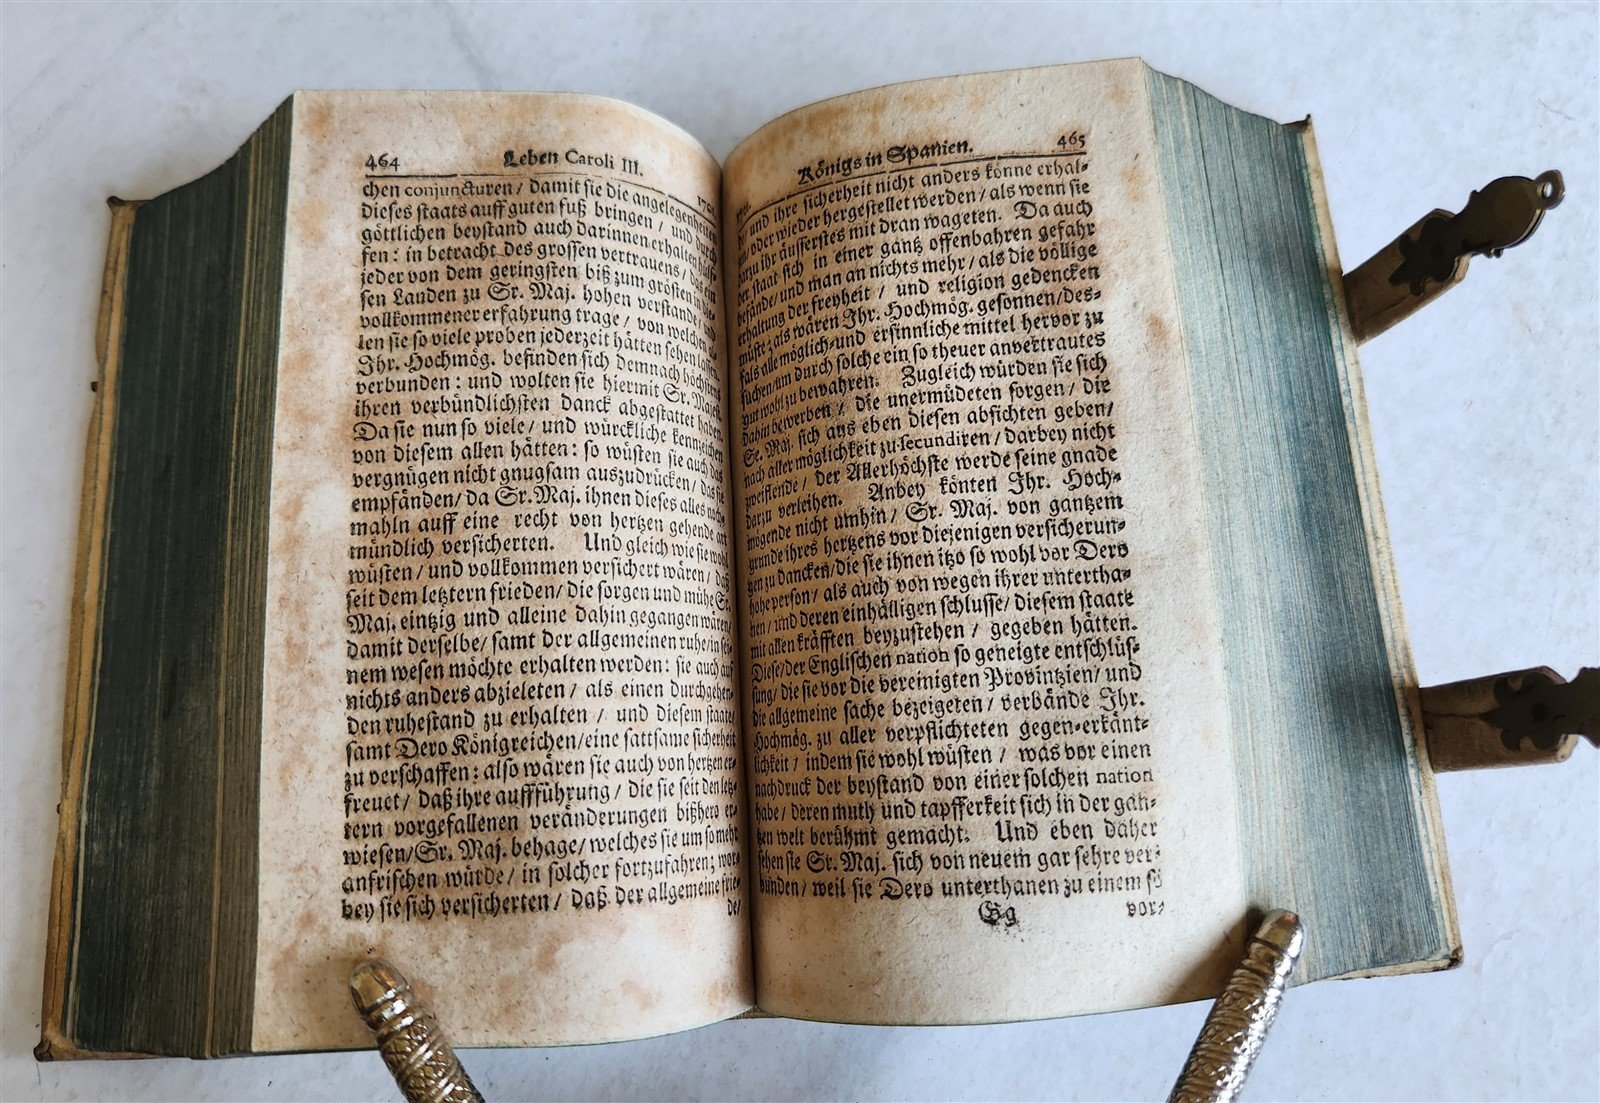 464 Leben Caroli III.
chen conjuncturen / damit sie die angelegenheiten
dieses staats auff guten fuß bringen / und durch
göttlichen beystand auch darinnen erhalten
fen: in betracht des grossen vertrauens /
jeder von dem geringsten biß zum grösten
sen Landen zu Sr. Maj. hohen verstande /
vollkommener erfahrung trage / von welchen
len sie so viele proben jederzeit hätten sehen lassen.
Ihr. Hochmög. befinden sich demnach höchstens
verbunden: und wolten sie hiermit Sr. Majest.
ihren verbündlichsten danck abgestattet haben.
Da sie nun so viele / und würckliche kennzeichen
von diesem allen hätten: so wüsten sie auch das
vergnügen nicht gnugsam auszudrücken / das sie
empfänden / da Sr. Maj. ihnen dieses alles noch-
mahln auff eine recht von hertzen gehende art
mündlich versicherten. Und gleich wie sie wohl
wüsten / und vollkommen versichert wären / daß
seit dem letztern frieden / die sorgen und mühe Sr.
Maj. eintzig und alleine dahin gegangen wären /
damit derselbe / samt der allgemeinen ruhe / in sei-
nem wesen möchte erhalten werden: sie auch auf
nichts anders abzieleten / als einen durchgehen-
den ruhestand zu erhalten / und diesem staate /
samt Dero Königreichen / eine sattsame sicherheit
zu verschaffen: also wären sie auch von hertzen er-
freuet / daß ihre aufführung / die sie seit den letz-
tern vorgefallenen veränderungen bißhero er-
wiesen / Sr. Maj. behage / welches sie um so mehr
anfrischen würde / in solcher fortzufahren; wor-
bey sie sich versicherten / daß der allgemeine frie-
de /
Königs in Spanien. 465
und ihre sicherheit nicht anders könne erhal-
oder wieder hergestellet werden / als wenn sie
darzu ihr äusserstes mit dran wageten. Da auch
der staat sich in einer gantz offenbahren gefahr
befände / und man an nichts mehr / als die völlige
erhaltung der freyheit / und religion gedencken
müste: als wären Ihr. Hochmög. gesonnen / des-
fals alle möglich- und ersinnliche mittel hervor zu
suchen / um durch solche ein so theuer anvertrautes
gut wohl zu bewahren. Zugleich würden sie sich
dahin bewerben / die unermüdeten sorgen / die
Sr. Maj. sich aus eben diesen absichten geben /
nach aller möglichkeit zu secundiren / darbey nicht
zweiflende / der Allerhöchste werde seine gnade
darzu verleihen. Anbey könten Ihr. Hoch-
mögende nicht umhin / Sr. Maj. von gantzem
grunde ihres hertzens vor diejenigen versicherun-
gen zu dancken / die sie ihnen itzo so wohl vor Dero
hohe person / als auch von wegen ihrer untertha-
nen / und deren einhälligen schlusse / diesem staate
mit allen kräfften beyzustehen / gegeben hätten.
Diese / der Englischen nation so geneigte entschlüs-
sung / die sie vor die vereinigten Provintzien / und
die allgemeine sache bezeigeten / verbände Ihr.
Hochmög. zu aller verpflichteten gegen-erkänt-
lichkeit / indem sie wohl wüsten / was vor einen
nachdruck der beystand von einer solchen nation
habe / deren muth und tapfferkeit sich in der gan-
tzen welt berühmt gemacht. Und eben daher
sehen sie Sr. Maj. sich von neuem gar sehre ver-
bunden / weil sie Dero unterthanen zu einem so
Gg vor-